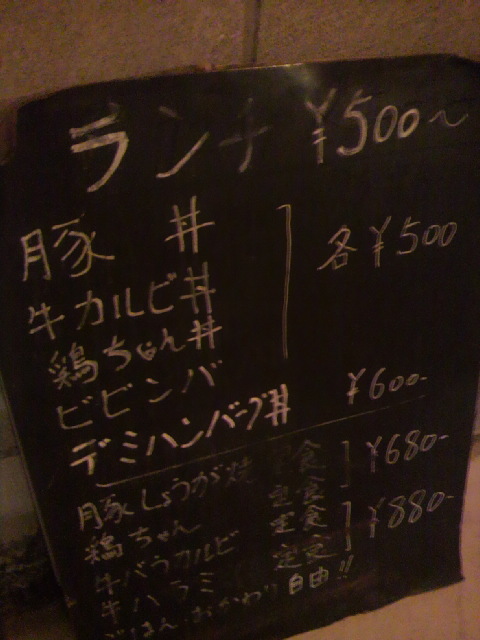 ランチ ¥500〜
豚 丼
牛カルビ丼
鶏ちゃん丼
ビビンバ
各¥500
デミハンバーグ丼 ¥600-
豚しょうが焼 定食
鶏ちゃん 定食
¥680-
牛バラカルビ 定食
牛ハラミ 定食
¥880-
ごはん おかわり 自由!!